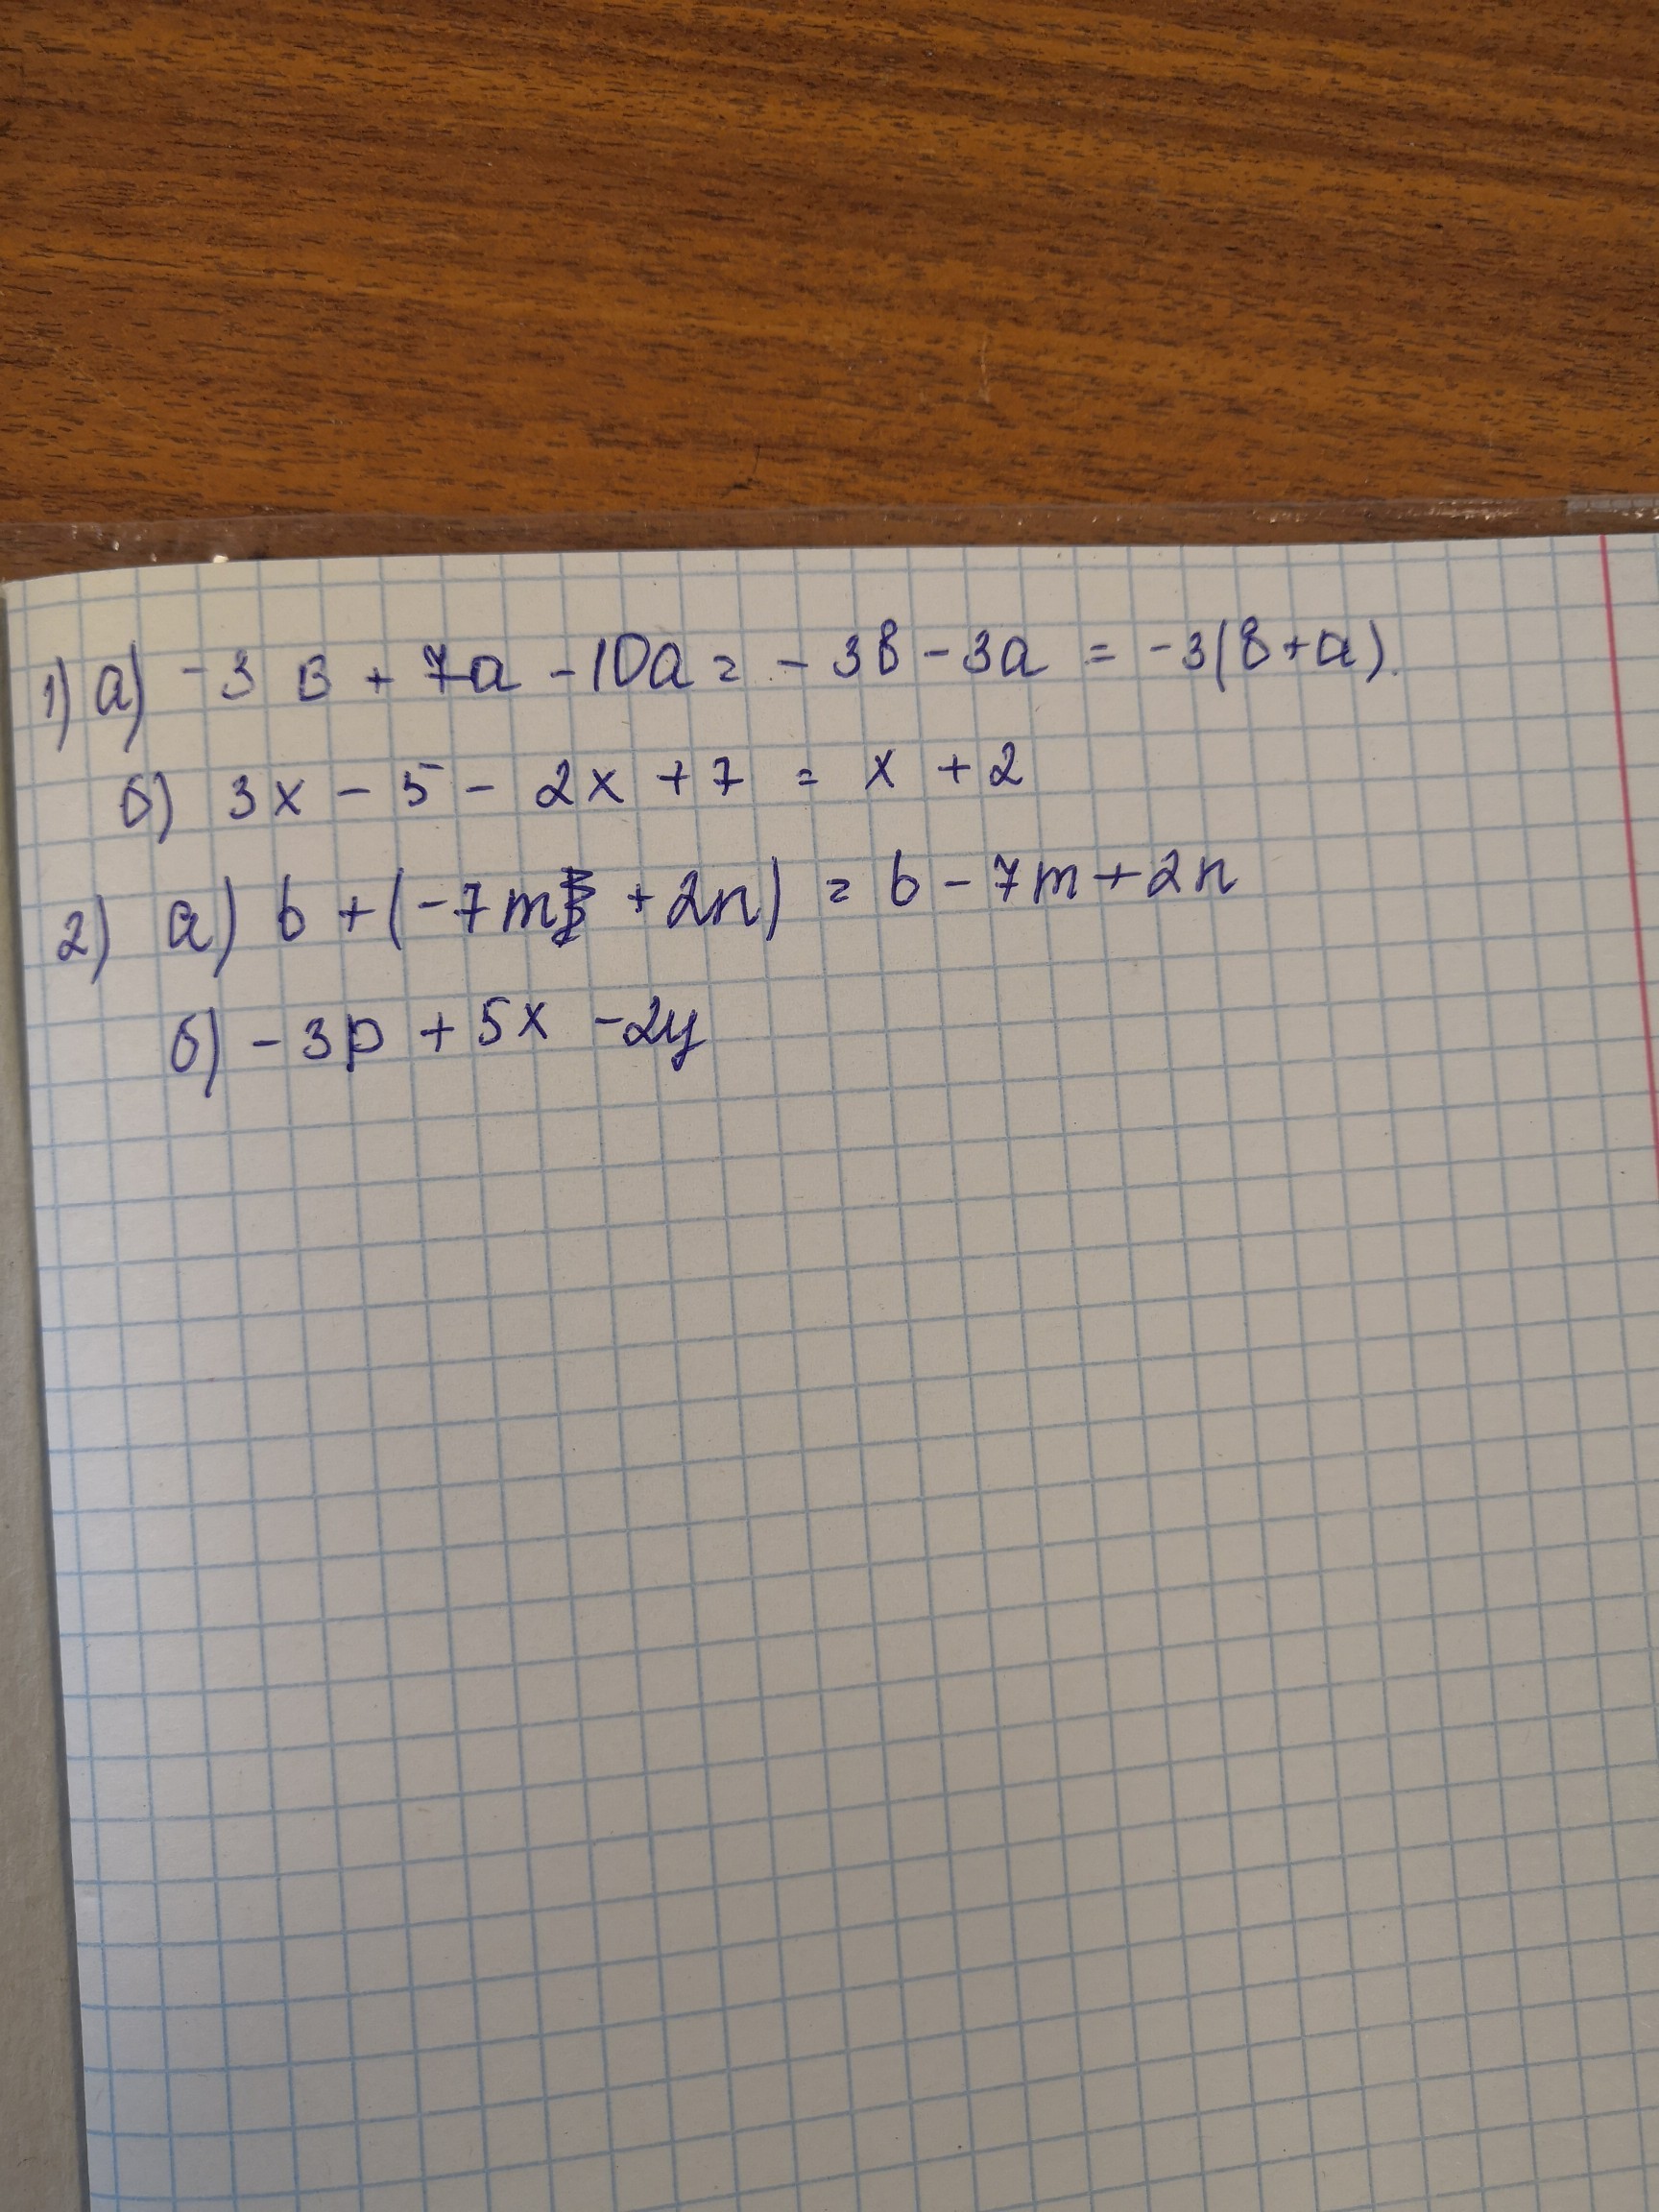 1) а) -3в + 7а - 10а = -3в - 3а = -3(в + а).
б) 3x - 5 - 2x + 7 = x + 2
2) а) b + (-7m + 2n) = b - 7m + 2n
б) -3p + 5x - 2y